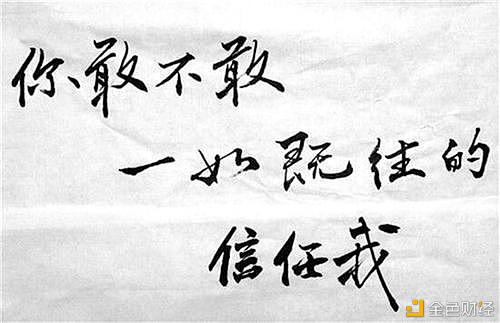 你敢不敢
一如既往的
信任我
金色财经